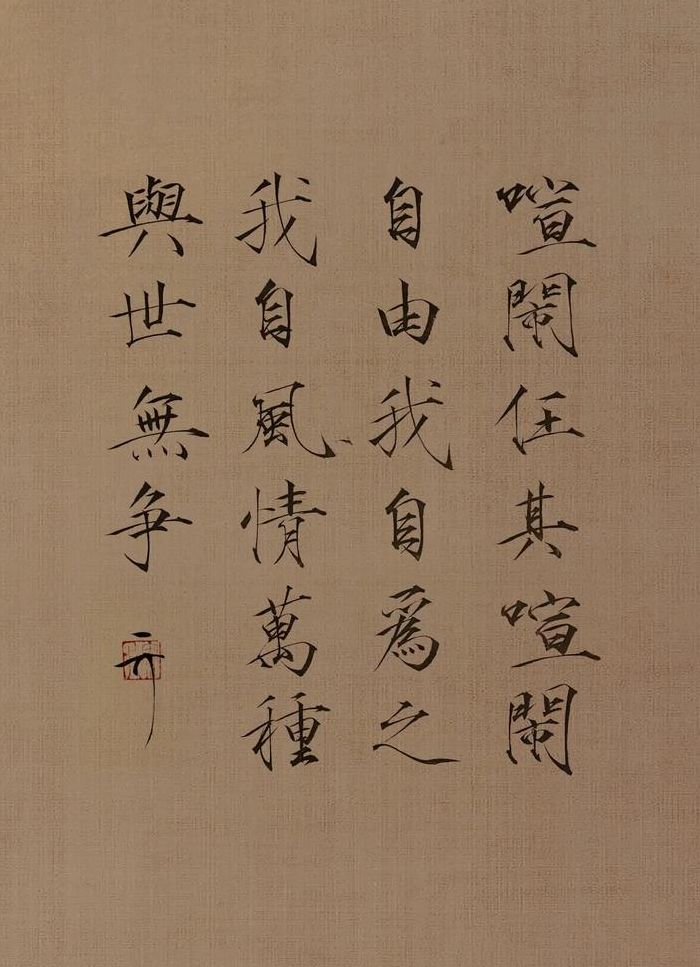 喧鬧任其喧鬧
自由我自為之
我自風情萬種
與世無爭